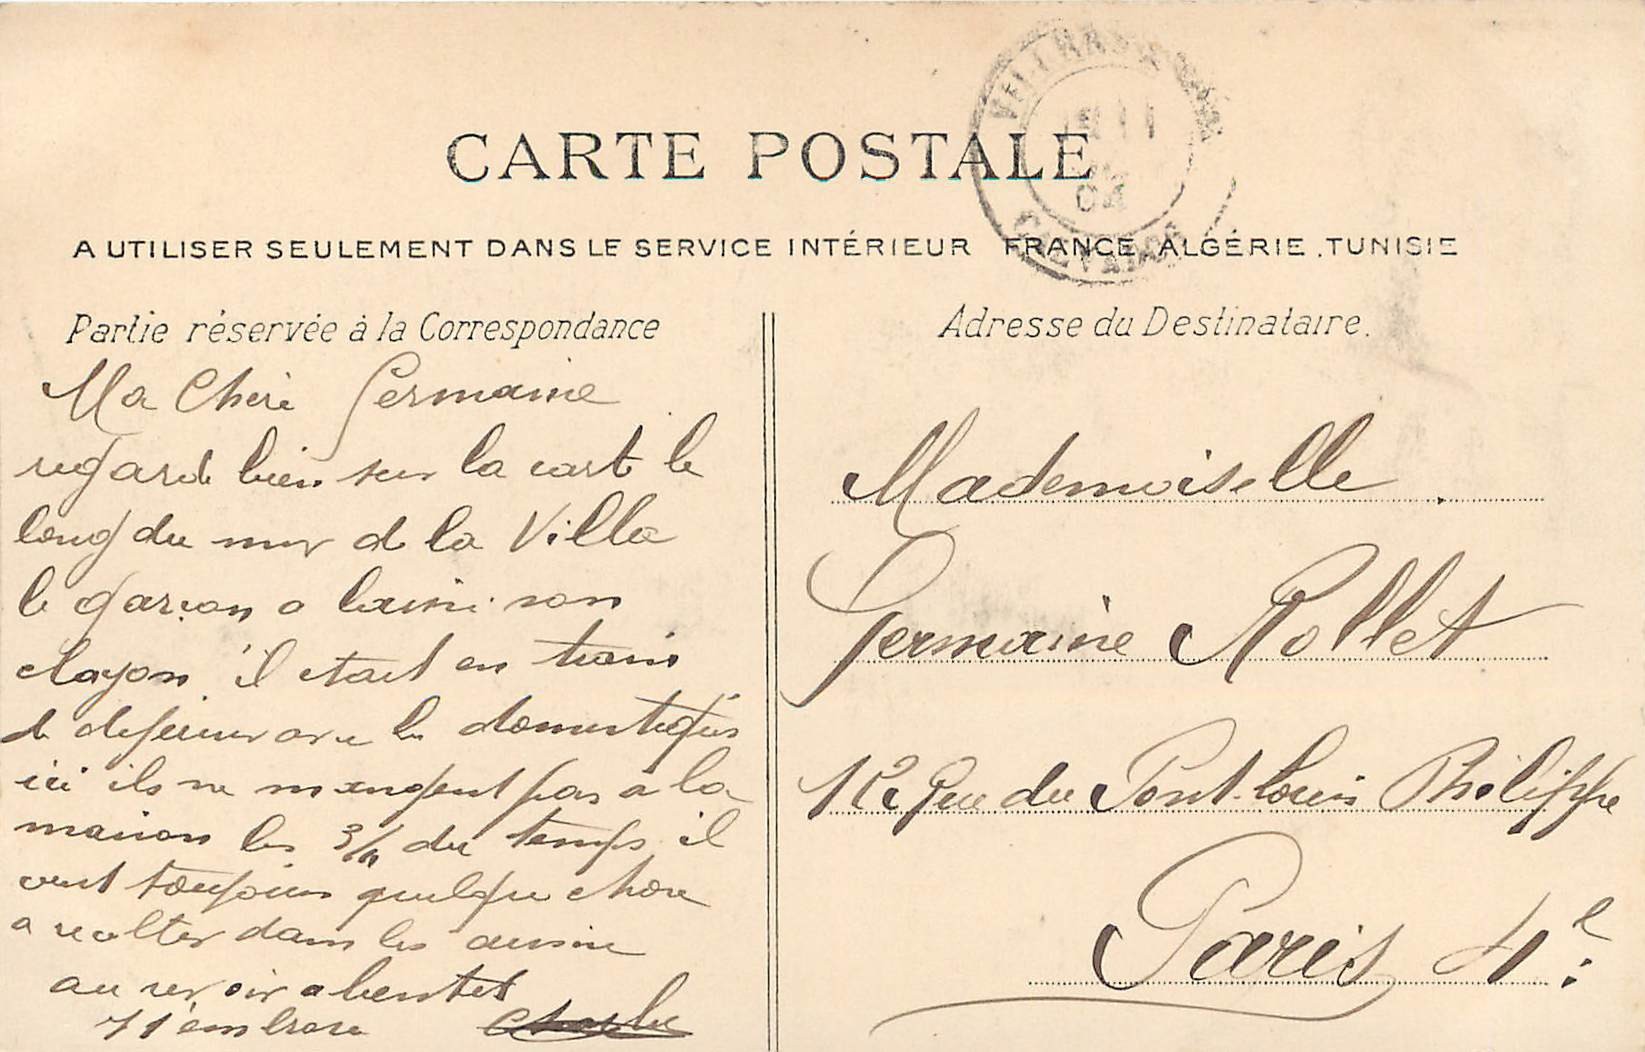 CARTE POSTALE
A UTILISER SEULEMENT DANS LE SERVICE INTÉRIEUR FRANCE, ALGÉRIE, TUNISIE
CALVADOS
Partie réservée à la Correspondance
Ma Chère Germaine
regarde bien sur la cart le
long du mur de la Villa
le garçon a laissé son
clayon il etait en train
de dejeuner avec les domestiques
ici ils ne mangent pas à la
maison les 3/4 du temps il
ont toujours quelque chose
a recolter dans les
au revoir a bientot
Adresse du Destinataire.
Mademoiselle
Germaine Rollet
12 Rue du Pont-Louis Philippe
Paris 4e